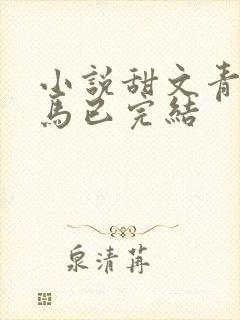 小說甜文青
馬已完結
泉清苒